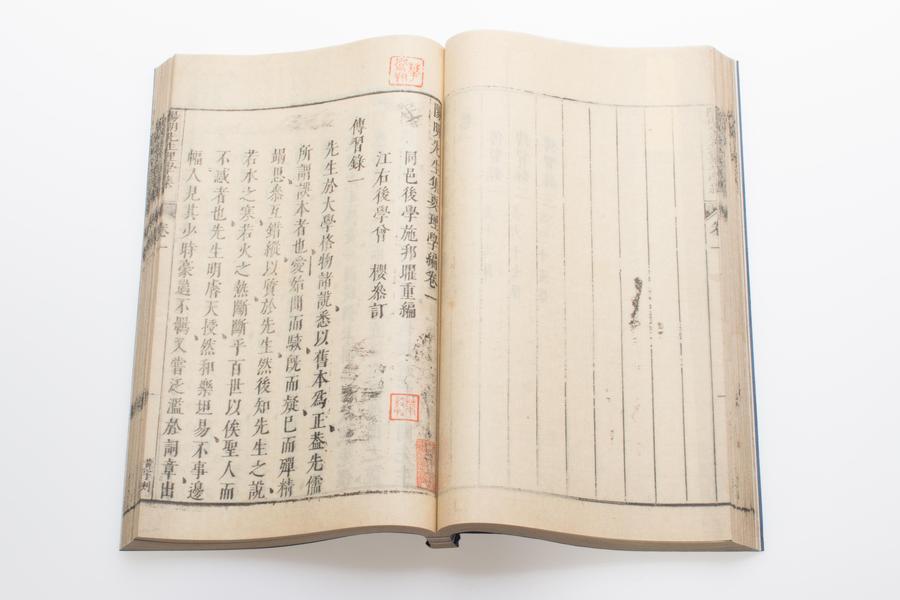 陽明先生集要理學編卷一
同邑後學施邦曜重編
江右後學曾 櫻叅訂
傳習錄一
先生於大學格物諸說、悉以舊本爲正、葢先儒
所謂誤本者也、愛始聞而駭、旣而疑、已而殫精
竭思、叅互錯縱、以質於先生、然後知先生之說、
若水之寒、若火之熱、斷斷乎百世以俟聖人而
不惑者也、先生明睿天授、然和樂坦易、不事邊
幅、人見其少時豪邁不羈、又嘗泛濫於詞章、出
卷一